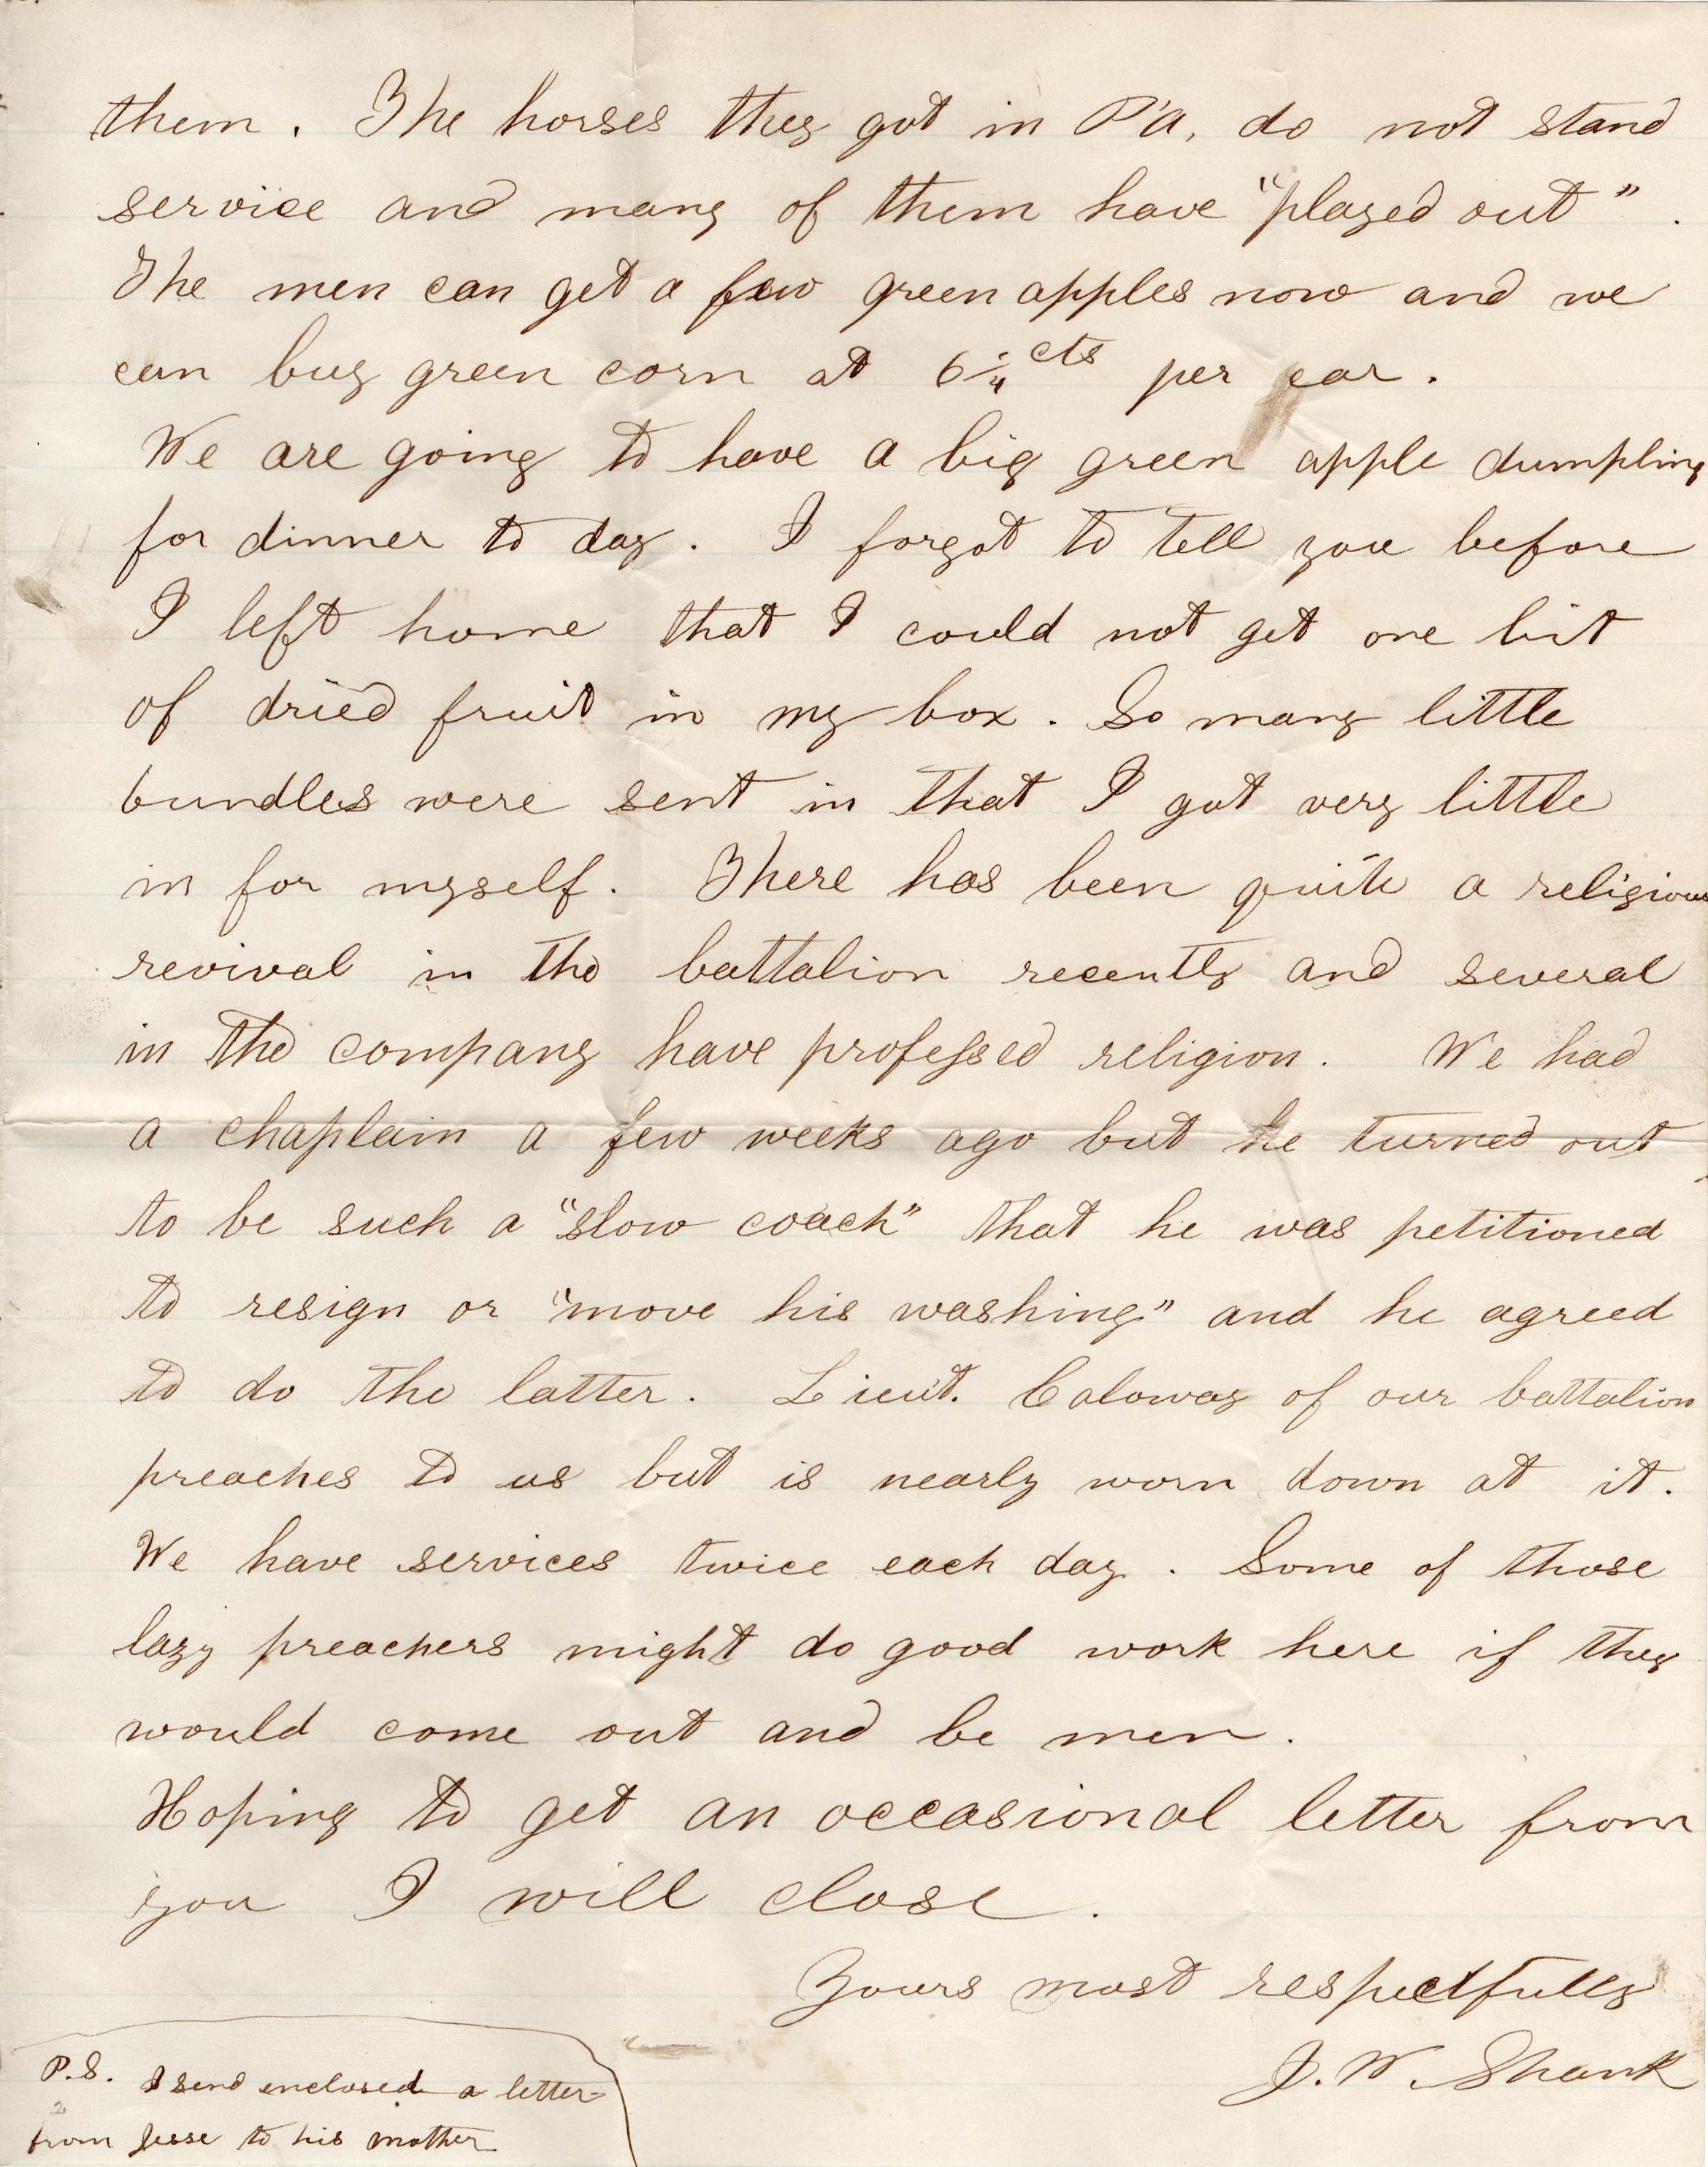 them. The horses they got in P'a, do not stand
service and many of them have "played out".
The men can get a few green apples now and we
can buy green corn at 6¼ cts per ear.
We are going to have a big green apple dumpling
for dinner to day. I forgot to tell you before
I left home that I could not get one bit
of dried fruit in my box. So many little
bundles were sent in that I got very little
in for myself. There has been quite a religious
revival in the battalion recently and several
in the company have professed religion. We had
a chaplain a few weeks ago but he turned out
to be such a "slow coach" that he was petitioned
to resign or "move his washing" and he agreed
to do the latter. Lieut. Caloway of our battalion
preaches to us but is nearly worn down at it.
We have services twice each day. Some of those
lazy preachers might do good work here if they
would come out and be men.
Hoping to get an occasional letter from
you I will close.
Yours most respectfully
J. W. Shank
P.S. I send enclosed a letter
from Jesse to his mother